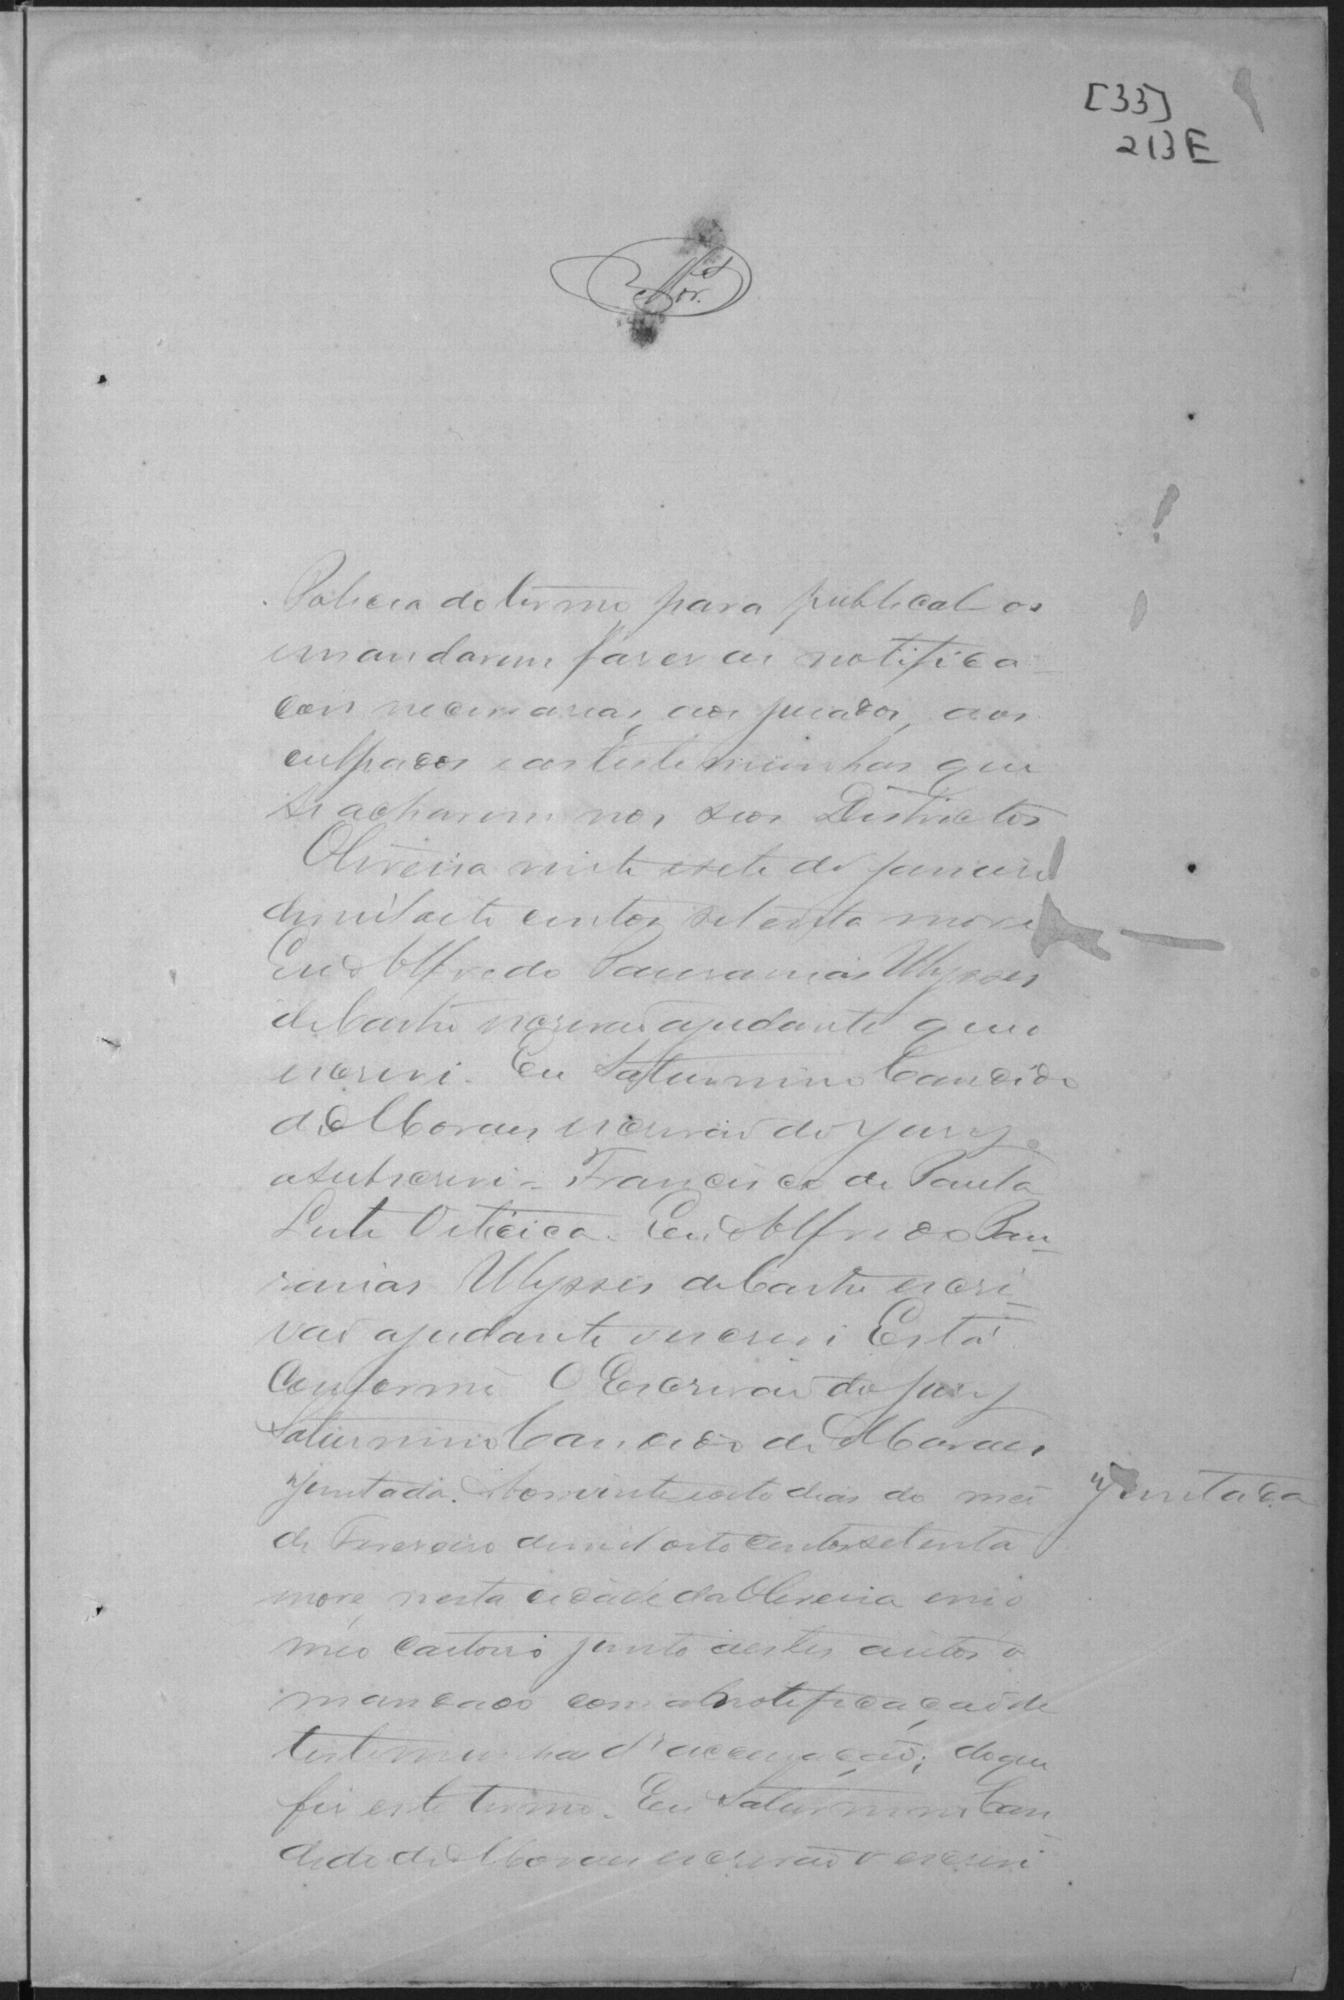 [33]
213 E
Policia do termo, para publical-os
e mandarem fazer as notifica-
coes necessarias, aos jurados, aos
culpados e as testemunhas que
se acharem nos seos Districtos
Oliveira vinte e sete de janeiro
de mil oito centos setenta nove
Eu Alfredo Pausanias Ulysses
de Castro escrivaõ ajudante que
escrevi. Eu Saturnino Candido
de Moraes escrivaõ do Jury
o subscrevi - Francisco de Paula
Leite Oiticica. Eu Alfredo Pau-
sanias Ulysses de Castro escri-
vaõ ajudante o escrevi Está
Conforme O Escrivaõ do Jury
Saturnino Candido de Moraes
Juntada. Aos vinte e oito dias do mes
Juntada
de Fevereiro de mil oito centos setenta
nove nesta cidade da Oliveira em o
meo Cartorio junto a estes autos o
mandado com a notificaçaõ de
testemunhas d'accusaçaõ; do que
fiz este termo. Eu Saturnino Can
dido de Moraes escrivaõ o escrevi